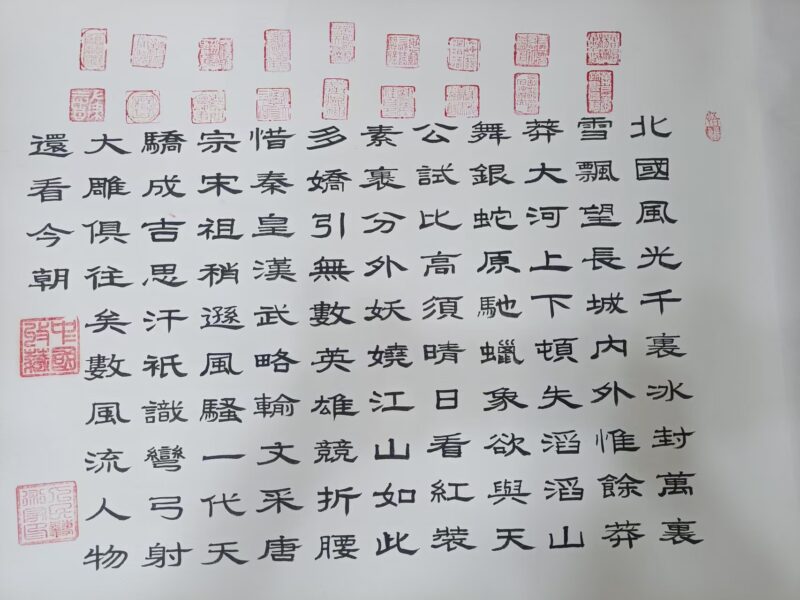 北國風光千裏冰封萬裏
雪飄望長城内外惟餘莽
莽大河上下頓失滔滔山
舞銀蛇原馳蠟象欲與天
公試比高須晴日看紅裝
素裹分外妖嬈江山如此
多嬌引無數英雄競折腰
惜秦皇漢武略輸文采唐
宗宋祖稍遜風騷一代天
驕成吉思汗衹識彎弓射
大雕俱往矣數風流人物
還看今朝
中國
收藏